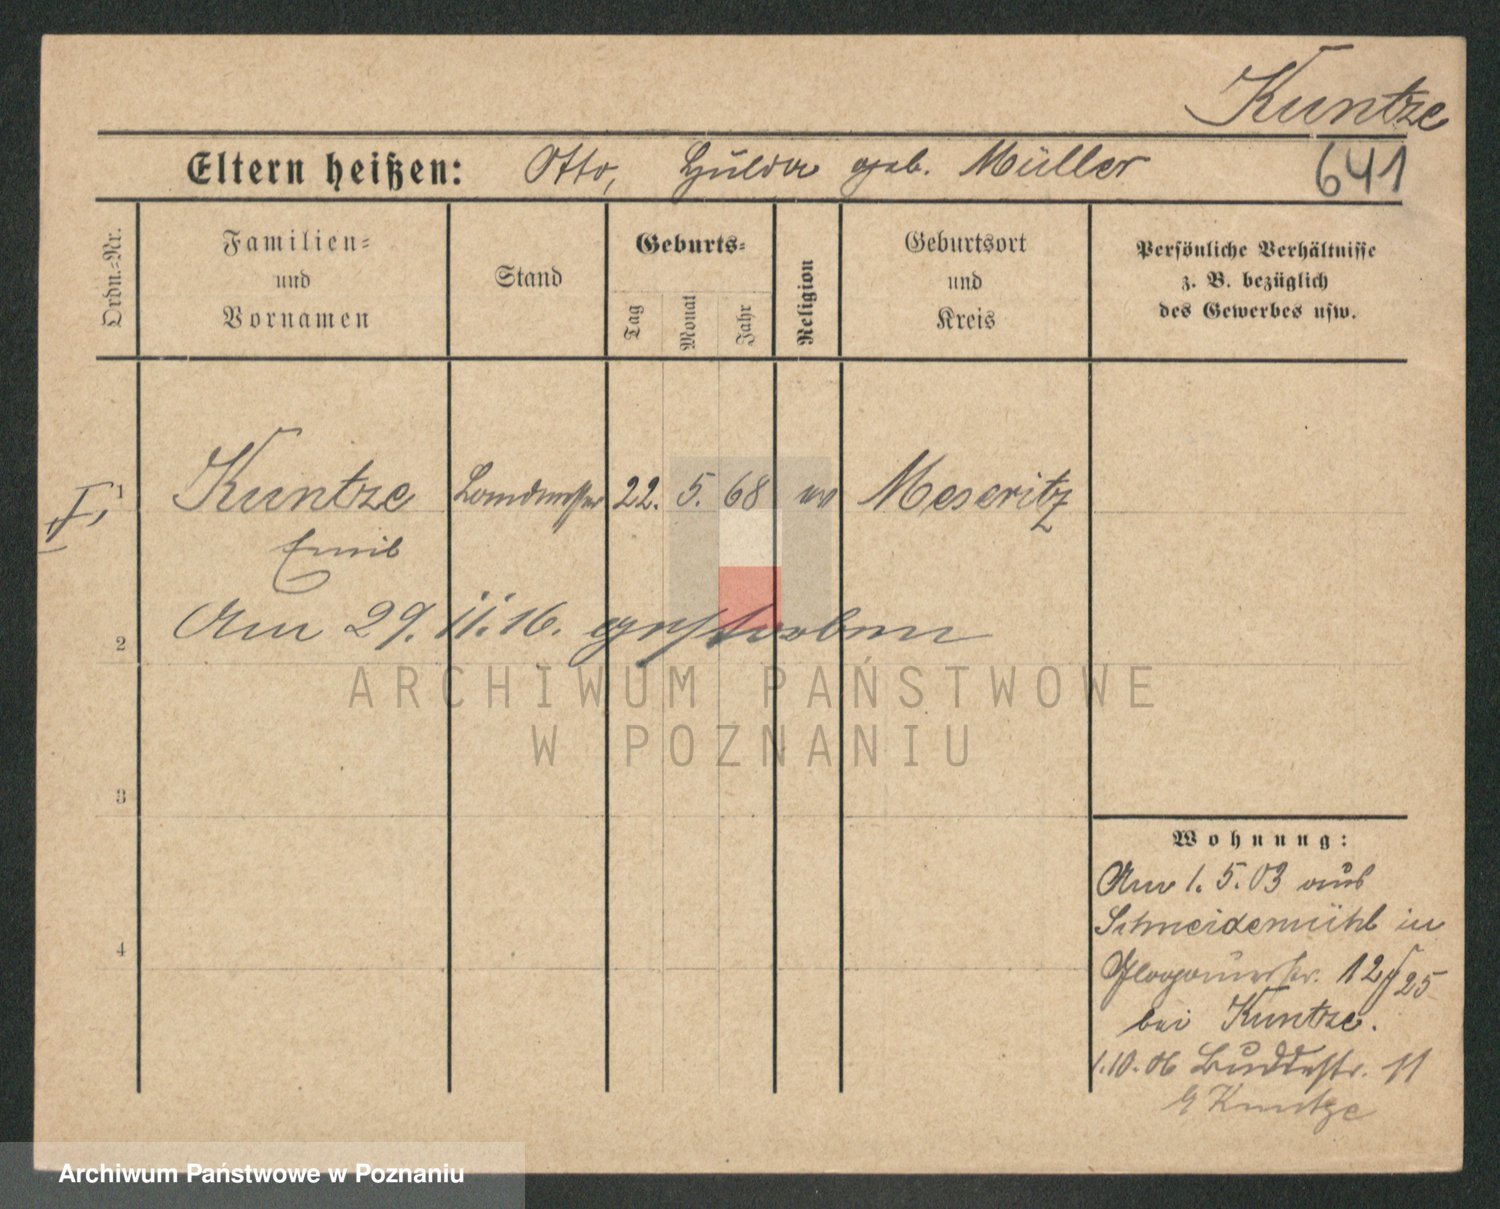 Kuntze
Eltern heißen: Otto, Hulda geb. Müller
641
Ordn.-Nr.
Familien-
und
Vornamen
Stand
Geburts-
Tag
Monat
Jahr
Religion
Geburtsort
und
Kreis
Persönliche Verhältnisse
z. B. bezüglich
des Gewerbes usw.
I, 1 Kuntze Landmesser 22. 5. 68 ev Meseritz
Emil
2 Am 29. 11. 16. gestorben
ARCHIWUM PAŃSTWOWE
W POZNANIU
3
Wohnung:
Am 1. 5. 03 aus
Schneidemühl in
4
Glogauerstr. 12/25
bei Kuntze.
1.10.06 Buddestr. 11
Kuntze
Archiwum Państwowe w Poznaniu